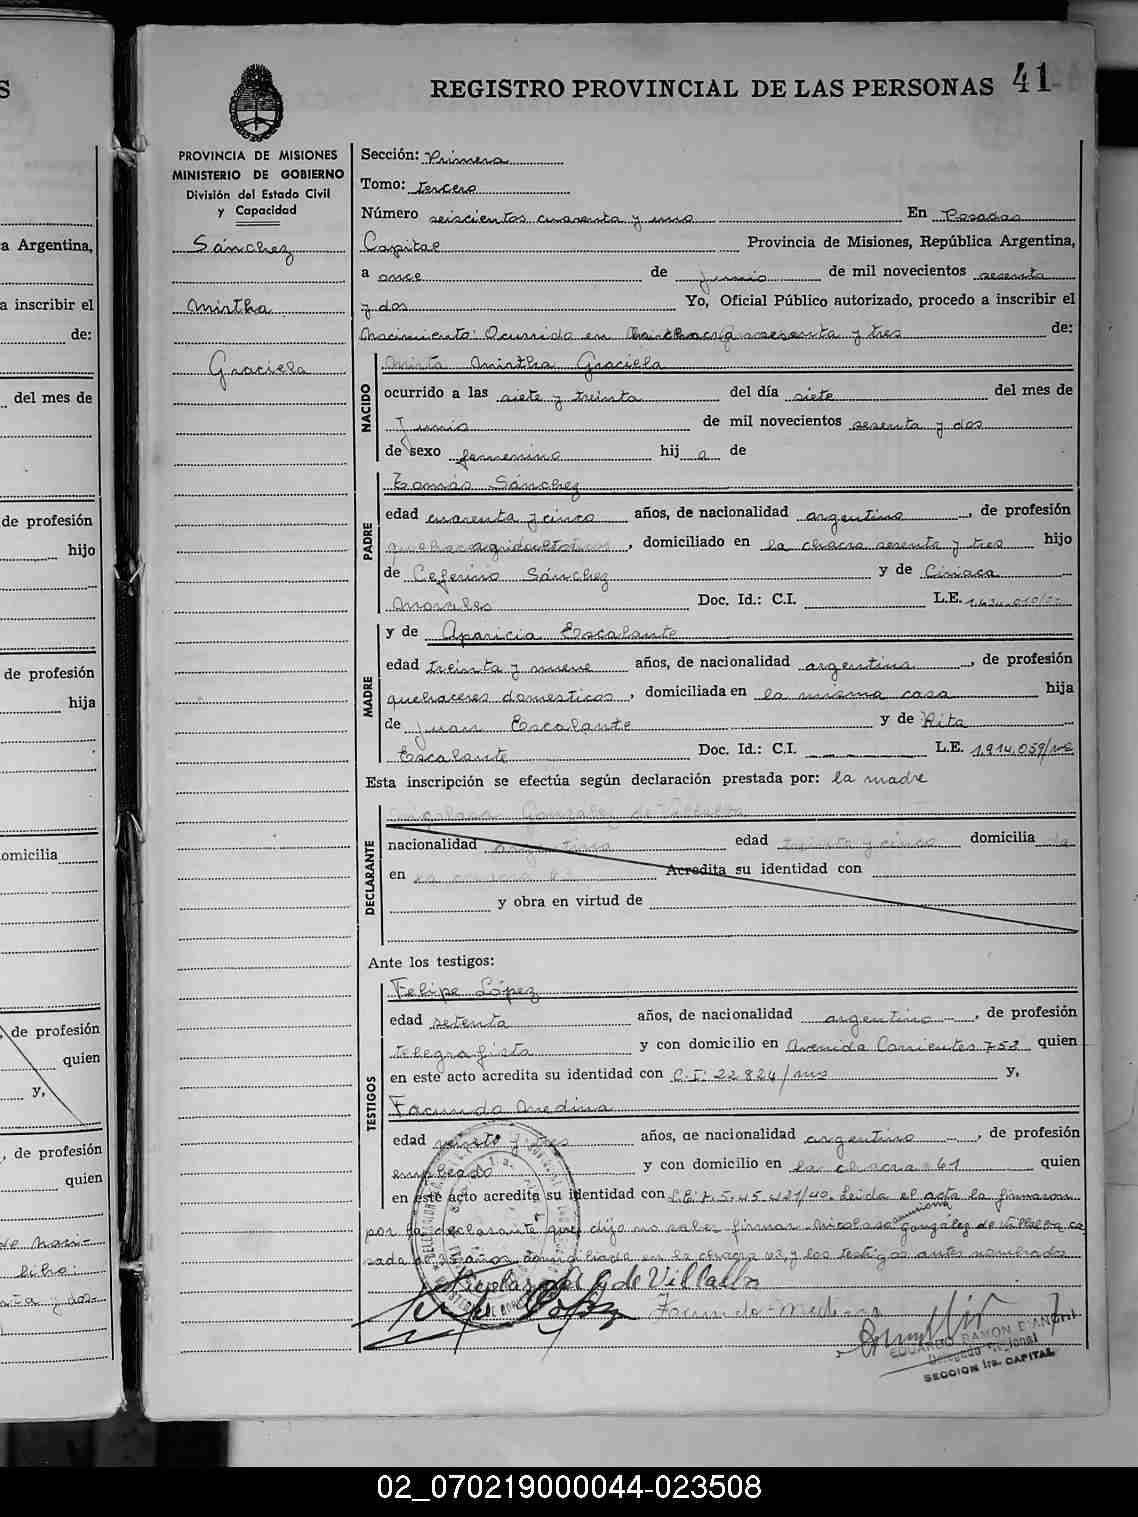 S
REGISTRO PROVINCIAL DE LAS PERSONAS 41
PROVINCIA DE MISIONES
MINISTERIO DE GOBIERNO
División del Estado Civil
y Capacidad
Sánchez
Mirtha
Graciela
Sección: Primera
Tomo: tercero
Número seiscientos cuarenta y uno En Posadas
Capital Provincia de Misiones, República Argentina,
a once de junio de mil novecientos sesenta
y dos Yo, Oficial Público autorizado, procedo a inscribir el
Nacimiento: Ocurrido en chacra sesenta y tres de:
NACIDO
Mirta Mirtha Graciela
ocurrido a las siete y treinta del día siete del mes de
Junio de mil novecientos sesenta y dos
de sexo femenino hij a de
PADRE
Tomás Sánchez
edad cuarenta y cinco años, de nacionalidad argentino, de profesión
agricultor, domiciliado en la chacra sesenta y tres hijo
de Ceferino Sánchez y de Ciriaca
Morales Doc. Id.: C.I. L.E.
MADRE
y de Aparicia Escalante
edad treinta y nueve años, de nacionalidad argentina, de profesión
quehaceres domesticos, domiciliada en la misma casa hija
de Juan Escalante y de Rita
Escalante Doc. Id.: C.I. L.E. 1.914.059/ms
Esta inscripción se efectúa según declaración prestada por: la madre
DECLARANTE
Gonzalez de Villalba
nacionalidad argentina edad treinta y cinco domicilia da
en la Acredita su identidad con
y obra en virtud de
Ante los testigos:
TESTIGOS
Felipe López
edad setenta años, de nacionalidad argentino, de profesión
telegrafista y con domicilio en Avenida Corrientes 752 quien
en este acto acredita su identidad con C.I. 22824/ms y,
Facundo Medina
edad veinte y tres años, de nacionalidad argentino, de profesión
empleado y con domicilio en la chacra 61 quien
en este acto acredita su identidad con Leída el acta la firmaron
por la declarante que dijo no saber firmar Nicolasa González de Villalba ca
sada de años domiciliada en la chacra 63, y los testigos antes nombrados
Nicolasa G de Villalba
Felipe López Facundo Medina
EDUARDO RAMON D'ANGELI
Delegado Seccional
SECCION 1ra. CAPITAL
a Argentina,
a inscribir el
de:
del mes de
de profesión
hijo
de profesión
hija
omicilia
de profesión
quien
y,
, de profesión
quien
02_070219000044-023508